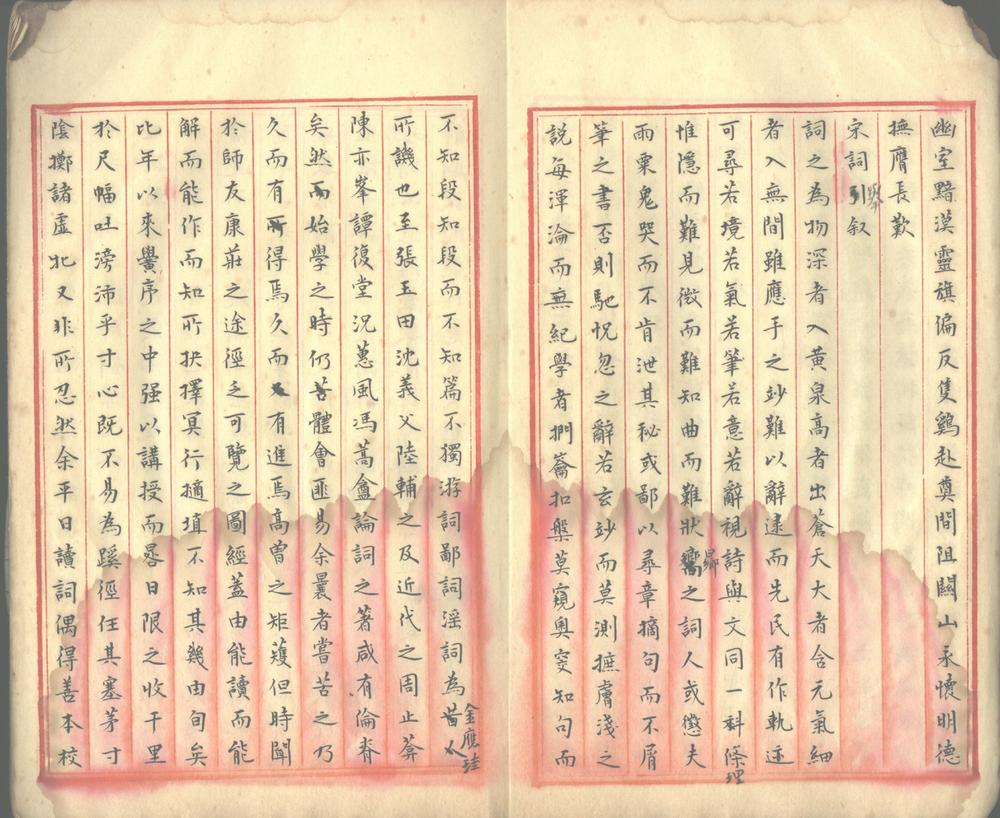 幽室黯漠靈旗偏反隻鷄赴奠間阻關山永懷明德
撫膺長歎
宋詞引叙
詞之為物深者入黄泉高者出蒼天大者含元氣細
者入無間雖應手之妙難以辭逮而先民有作軌迹
可尋若境若氣若筆若意若辭視詩與文同一科條理
惟隱而難見微而難知曲而難狀曩之詞人或懲夫
雨粟鬼哭而不肯泄其秘或鄙以尋章摘句而不屑
筆之書否則馳怳忽之辭若玄妙而莫測摭膚淺之
説每渾淪而無紀學者捫籥扣槃莫窺奥窔知句而
不知段知段而不知篇不獨游詞鄙詞滛詞為金應珪
所譏也至張玉田沈義父陸輔之及近代之周止菴
陳亦峯譚復堂况蕙風馮蒿盦論詞之著咸有倫脊
矣然而始學之時仍苦體會匪易余曩者嘗苦之乃
久而有所得焉久而有進焉高曾之矩矱但時聞
於師友康莊之途徑乏可覽之圖經蓋由能讀而能
解而能作而知所抉擇冥行擿埴不知其幾由旬矣
比年以來黌序之中强以講授而晷日限之收千里
於尺幅吐滂沛乎寸心既不易為蹊徑任其塞茅寸
陰擲諸虚牝又非所忍然余平日讀詞偶得善本校